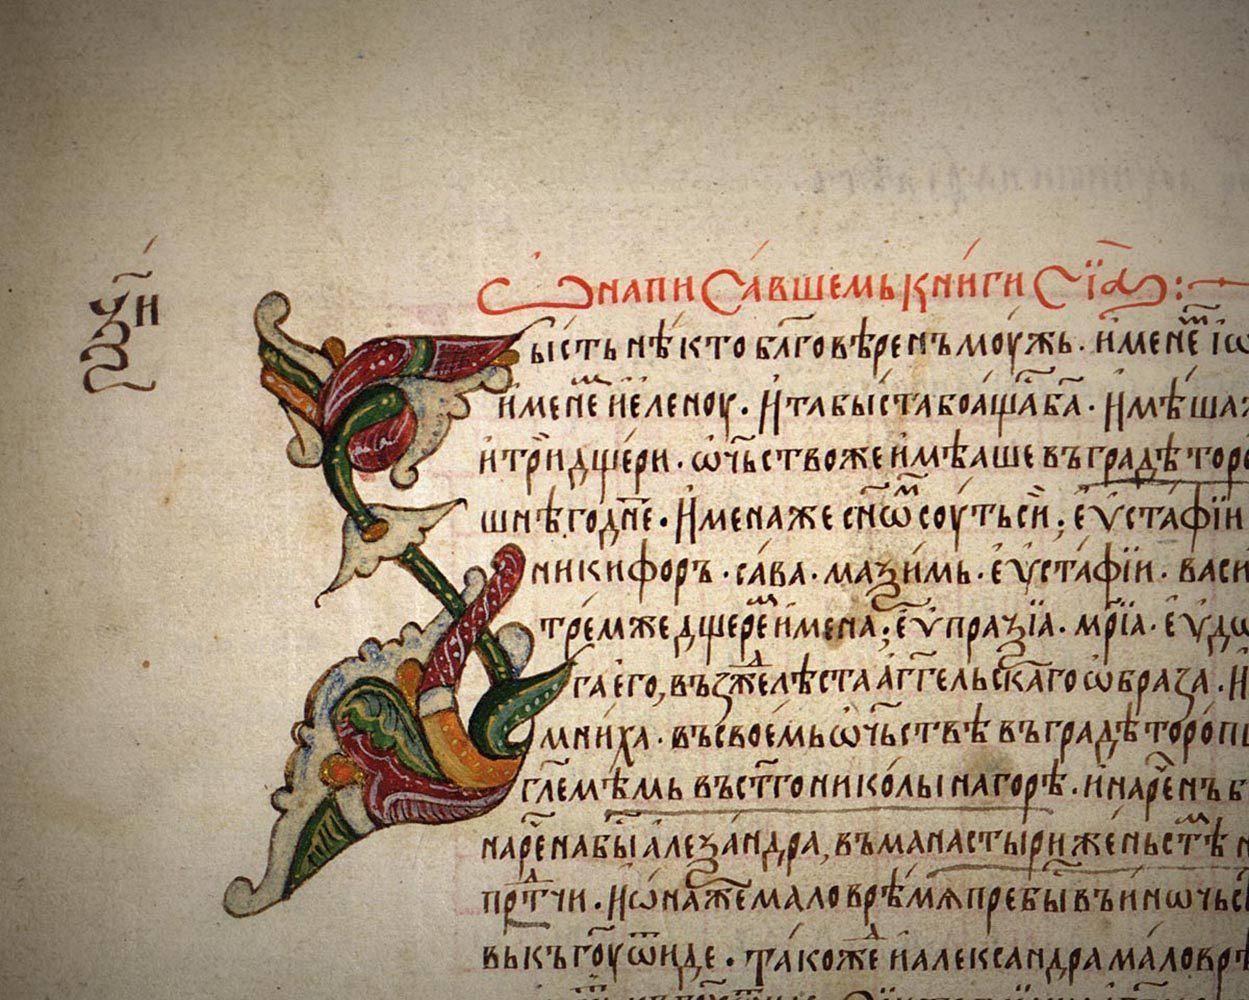 зн҃
Ѡ написа́вшемь кни́ги сїѧ҄:
Бы́сть нѣ́кто бл҃говѣ́ренъ моу́жь. и҆мене́м і҆ѡ
и҆мене́м и҆ е҆ле́ноу. и҆ та бы́ста боа҆́ща҄ бг҃а. и҆мѣ́ша
и҆ три҄ дще́ри. ѡ҆ч҃ьство же и҆мѣ́аше въ гра́дѣ торо
шнѣ́ го дн҃е. и҆мена́ же сн҃ѡм соу́ть сѝ; е҆ѵста́фїи
никифоръ. са́ва. маѯи́мь. е҆ѵста́фїи. васи
тре́м же дще́рем и҆мена́; е҆ѵпраѯїа. мр҃їа. е҆ѵдѡ
га е҆го̀, въꙁжделѣ́ста а҆́гг҃ельскаго ѡ҆́браꙁа. и҆
мни́ха. въ свое́мь ѡ҆ч҃ьствѣ въ гра́дѣ торо́пь
гл҃емѣ́мь въ ст҃го нико́лы на горѣ̀. и҆ наре́ченъ б
наре́чена бы҄ а҆леѯа́ндра, въ манасты́ри же́ньстѣм
прⷣтчи. и҆ ѡ҆на́ же мало врѣ́мѧ пребы҄ въ и҆нѡчьс
вь къ гоу҄ ѿи́де. та́кожде и҆ а҆лекса́ндра ма́ло врѣ